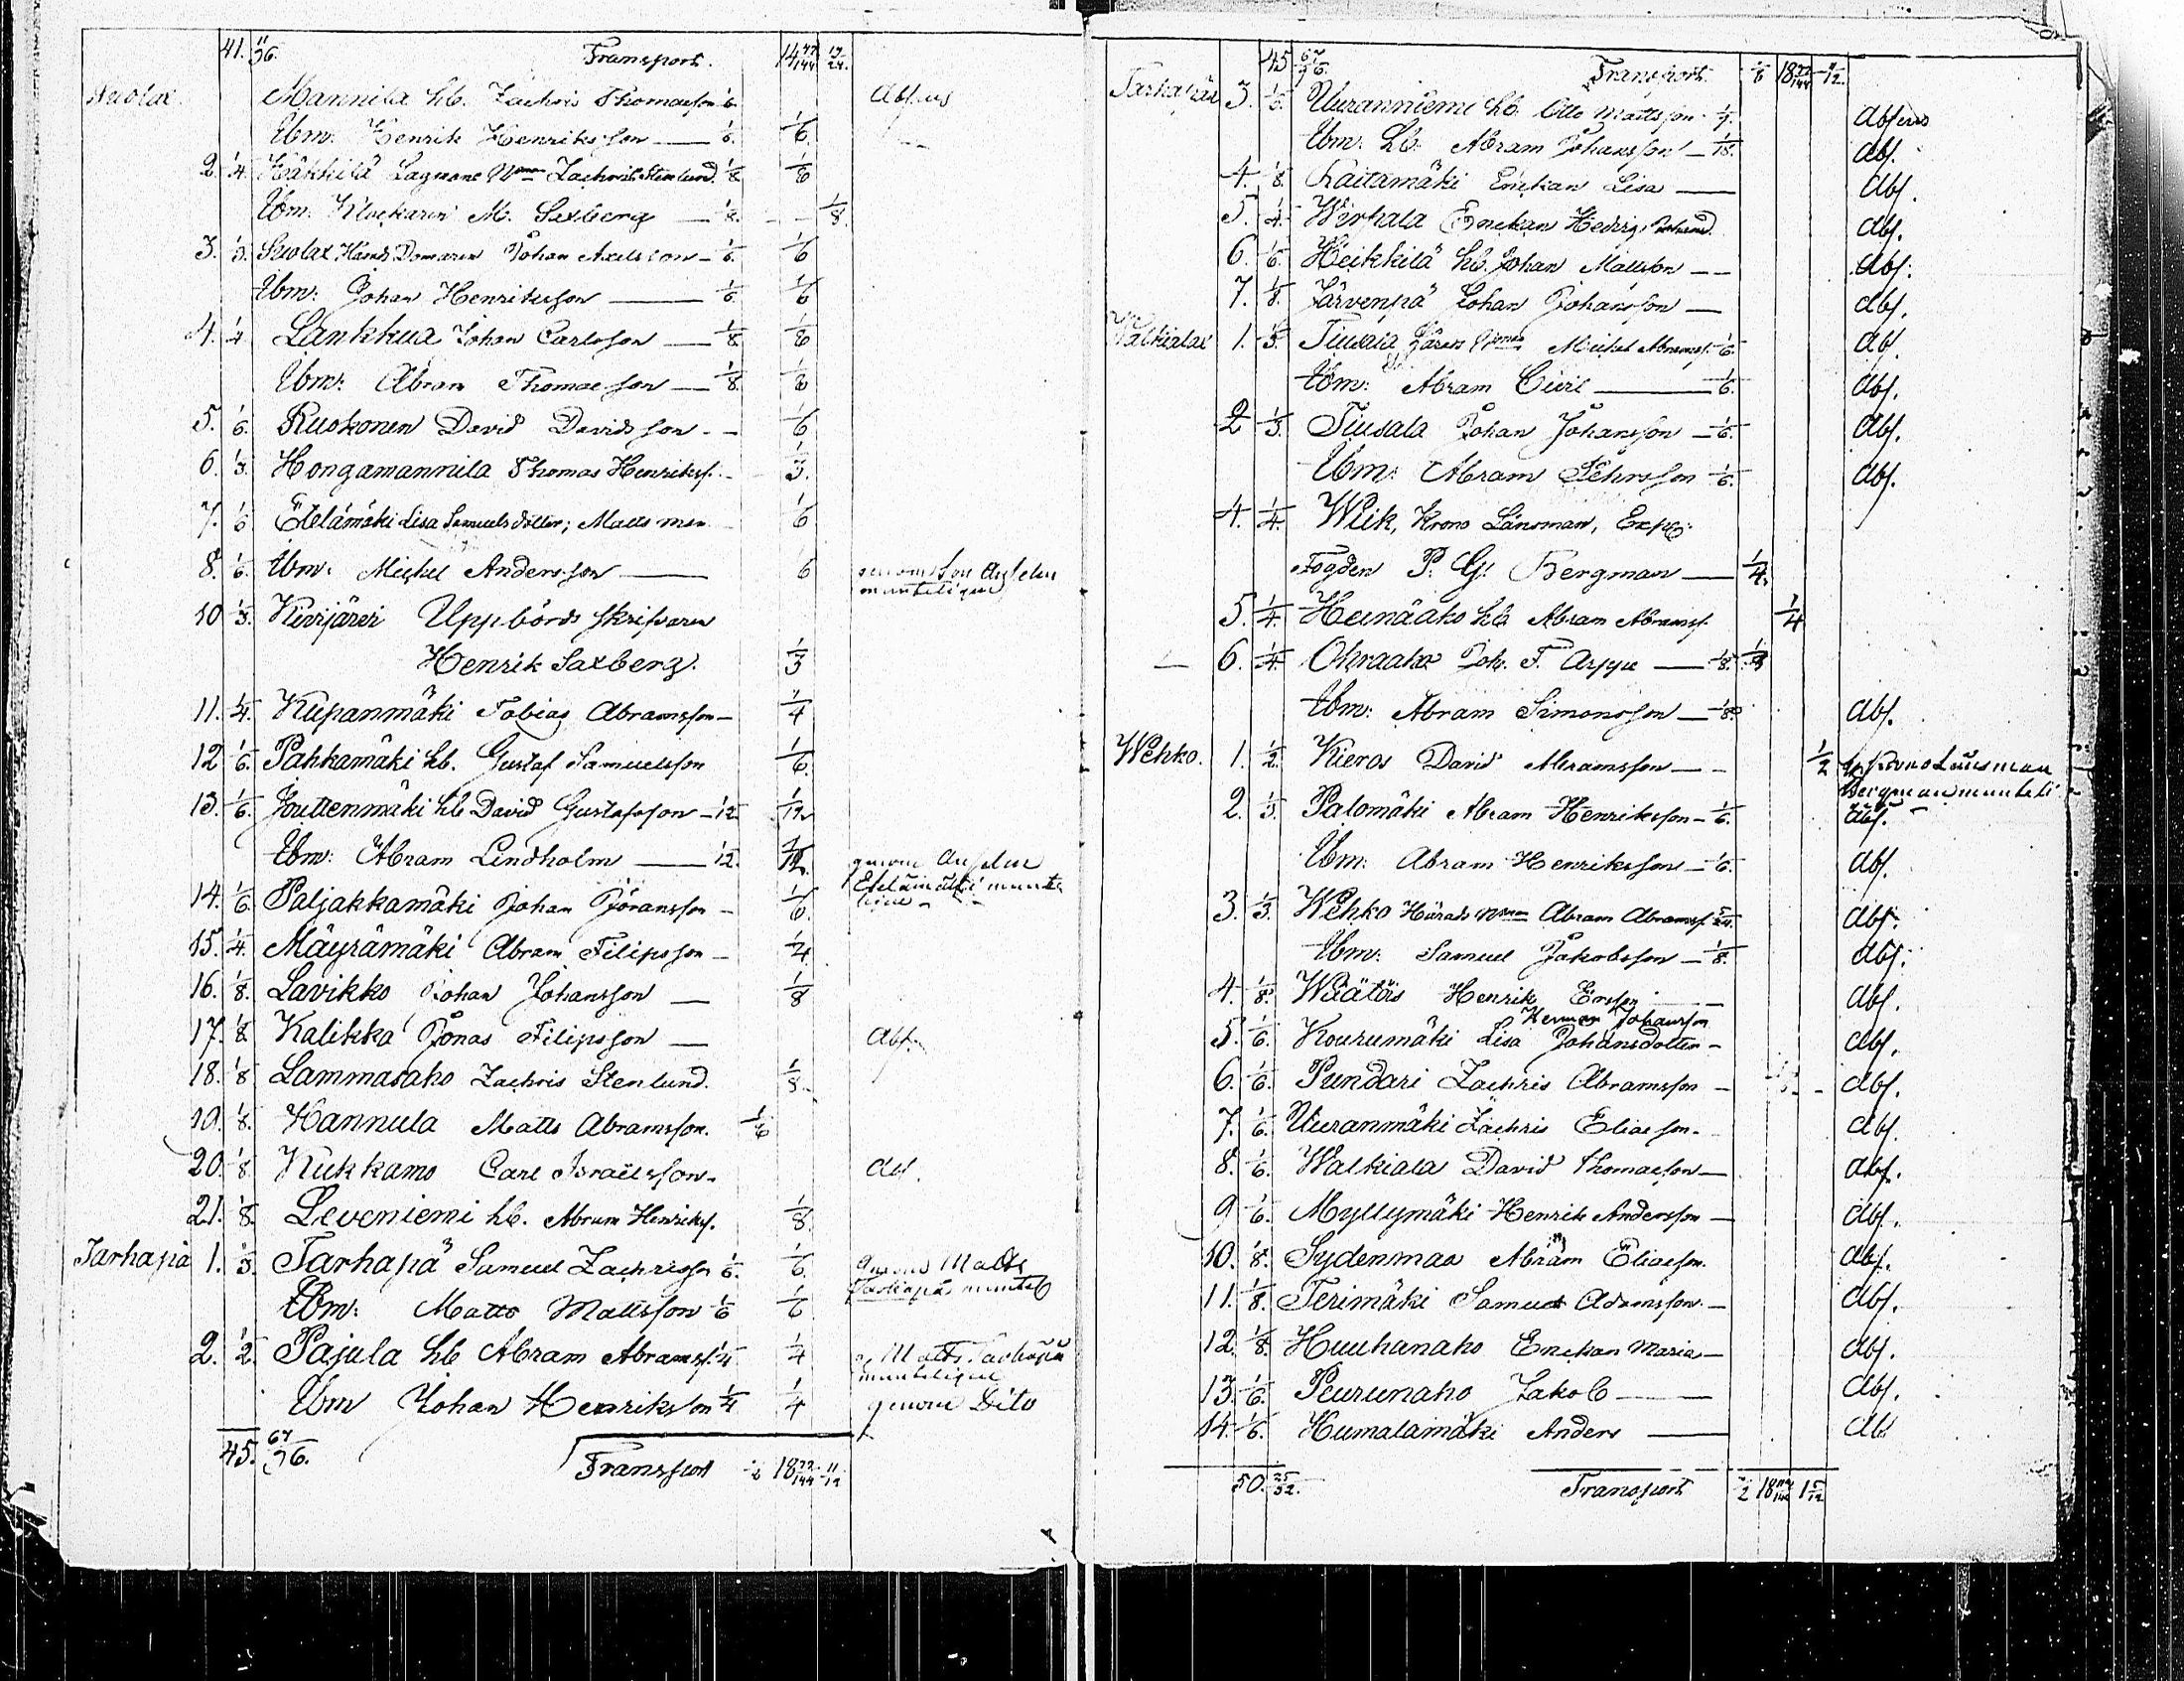 41. 11/36. Transport. 14 77/144 19/24.
Suolax. Mannila hb. Zachris Thomasson 1/6. Absens
Ibm: Henrik Henriksson — 1/6. 1/6
2. 1/4. Käkkilä Lagmans Zachris Stenlund. 1/8. 1/8
Ibm. Klockaren M. Saxberg — 1/8. 1/8.
3. 1/3. Suolax Härads Domaren Johan Axelsson — 1/6. 1/6
Ibm: Johan Henriksson — 1/6. 1/6
4. 1/4 Lankkua Johan Carlsson — 1/8 1/8
Ibm: Abram Thomasson — 1/8. 1/8
5. 1/6. Ruokonen David Davidsson - - 1/6
6. 1/3. Hongamannila Thomas Henrikss. - 1/3.
7. 1/6 Etelämäki Lisa Samuelsdotter; Matts man 1/6
8. 1/6. Ibm: Michel Andersson — 6 genom son Anselm
munteligen
10 1/3. Kivijärvi Uppbörds skrifvaren
Henrik Saxberg. 1/3
11. 1/4. Kupanmäki Tobias Abramsson — 1/4
12 1/6. Pahkamäki hb. Gustaf Samuelsson 1/6.
13. 1/6. Juttenmäki hb David Gustafsson — 1/12. 1/12
Ibm: Abram Lindholm — 1/12. 1/12. genom Anselm
Etelämäki munte
ligen
14. 1/6. Paljakkamäki Johan Göransson — 1/6.
15. 1/4. Mäyrämäki Abram Filipsson — 1/4
16. 1/8. Lavikko Johan Johansson — 1/8
17. 1/8 Kalikka Jonas Filipsson — Abs.
18. 1/8 Lammasaho Zachris Stenlund. 1/8.
19. 1/8. Hannula Matts Abramsson. 1/6
20. 1/8 Kukkamo Carl Israelsson. Abs.
21. 1/8. Leveniemi hb. Abram Henrikss. 1/8.
Tarhapä 1. 1/3. Tarhapä Samuel Zachrisson 1/6. 1/6. genom Matts
Tarhapää muntel
Ibm: Matts Mattsson 1/6 1/6
2. 1/2. Pajula hb Abram Abramss. 1/4 1/4 g. Matts Tarhapää
munteligen
Ibm Johan Henriksson 1/4 1/4 genom Dito
45. 67/76. Transport 18 77/144 11/12
45 67/76. Transport. 18 77/144 11/12.
Tarhapää 3. 1/6. Uuranniemi hb. Otto Mattsson Absens
Ibm: hb. Abram Johansson — 1/18. Abs.
4. 1/8. Raitamäki Enckan Lisa — Abs.
5. 1/4. Wirkala Enckan Hedvig Abs.
6. 1/6. Heikkilä hb. Johan Mattsson — Abs.
7. 1/8. Järvenpä Johan Johansson — Abs.
Walkialax 1. 1/3. Tiusala Michel Abramss. 1/6. Abs.
Ibm: Abram Civil — 1/6. Abs.
2 1/3. Tiusala Johan Johansson — 1/6. Abs.
Ibm: Abram Pehrsson 1/6. Abs.
4. 1/4. Wiik, Krono Länsman, Exp:
Fogden P. G. Bergman — 1/4.
5. 1/4. Heinäaho hb Abram Abramss. 1/4
— 6. 1/4. Ohraaho Joh. F. Arppe — 1/8. 1/8
Ibm: Abram Simonsson — 1/8. Abs.
Wehko. 1. 1/2. Kieros David Abramsson — 1/2 g. Krono Länsman
Bergman munteli
2. 1/3. Palomäki Abram Henriksson — 1/6. Abs.
Ibm: Abram Henriksson — 1/6. Abs.
3. 1/3. Wehko Härads Abram Abramss. 5/24. Abs.
Ibm: Samuel Jakobsson — 1/8. Abs.
4. 1/8. Wäätäs Henrik Ersson — Abs.
Herman Johansson
5. 1/6. Kourumäki Lisa Johansdotter — Abs.
6. 1/6. Pundari Zachris Abramsson — Abs.
7. 1/6. Uuranmäki Zachris Eliasson. Abs.
8. 1/6. Walkiala David Thomasson — Abs.
9 1/6. Myllymäki Henrik Andersson — Abs.
10. 1/8. Sydenmaa Abram Eliasson. Abs.
11. 1/8. Terimäki Samuel Adamsson. — Abs.
12. 1/8. Huuhanaho Enckan Maria — Abs.
13. 1/6. Peurunaho Jakob — Abs.
14. 1/6. Humalamäki Anders — Abs
50. 25/52. Transport 1/2 18 1 5/12